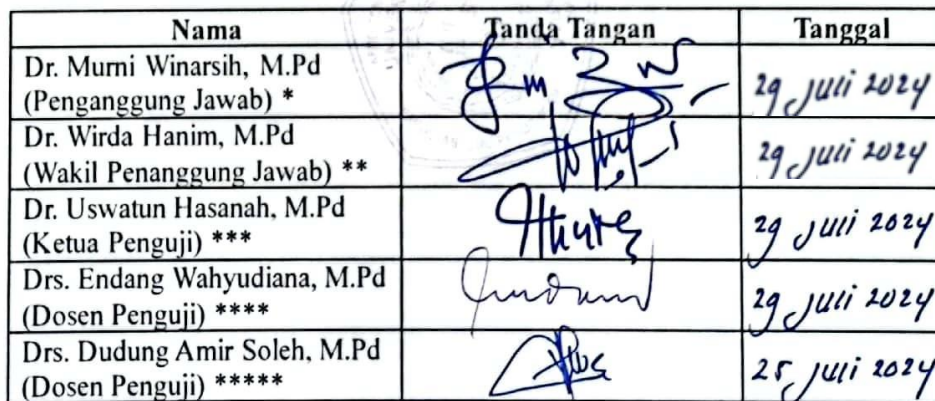 Nama Tanda Tangan Tanggal
Dr. Murni Winarsih, M.Pd
(Penganggung Jawab) * 29 Juli 2024
Dr. Wirda Hanim, M.Pd
(Wakil Penanggung Jawab) ** 29 Juli 2024
Dr. Uswatun Hasanah, M.Pd
(Ketua Penguji) *** 29 Juli 2024
Drs. Endang Wahyudiana, M.Pd
(Dosen Penguji) **** 29 Juli 2024
Drs. Dudung Amir Soleh, M.Pd
(Dosen Penguji) ***** 25 Juli 2024